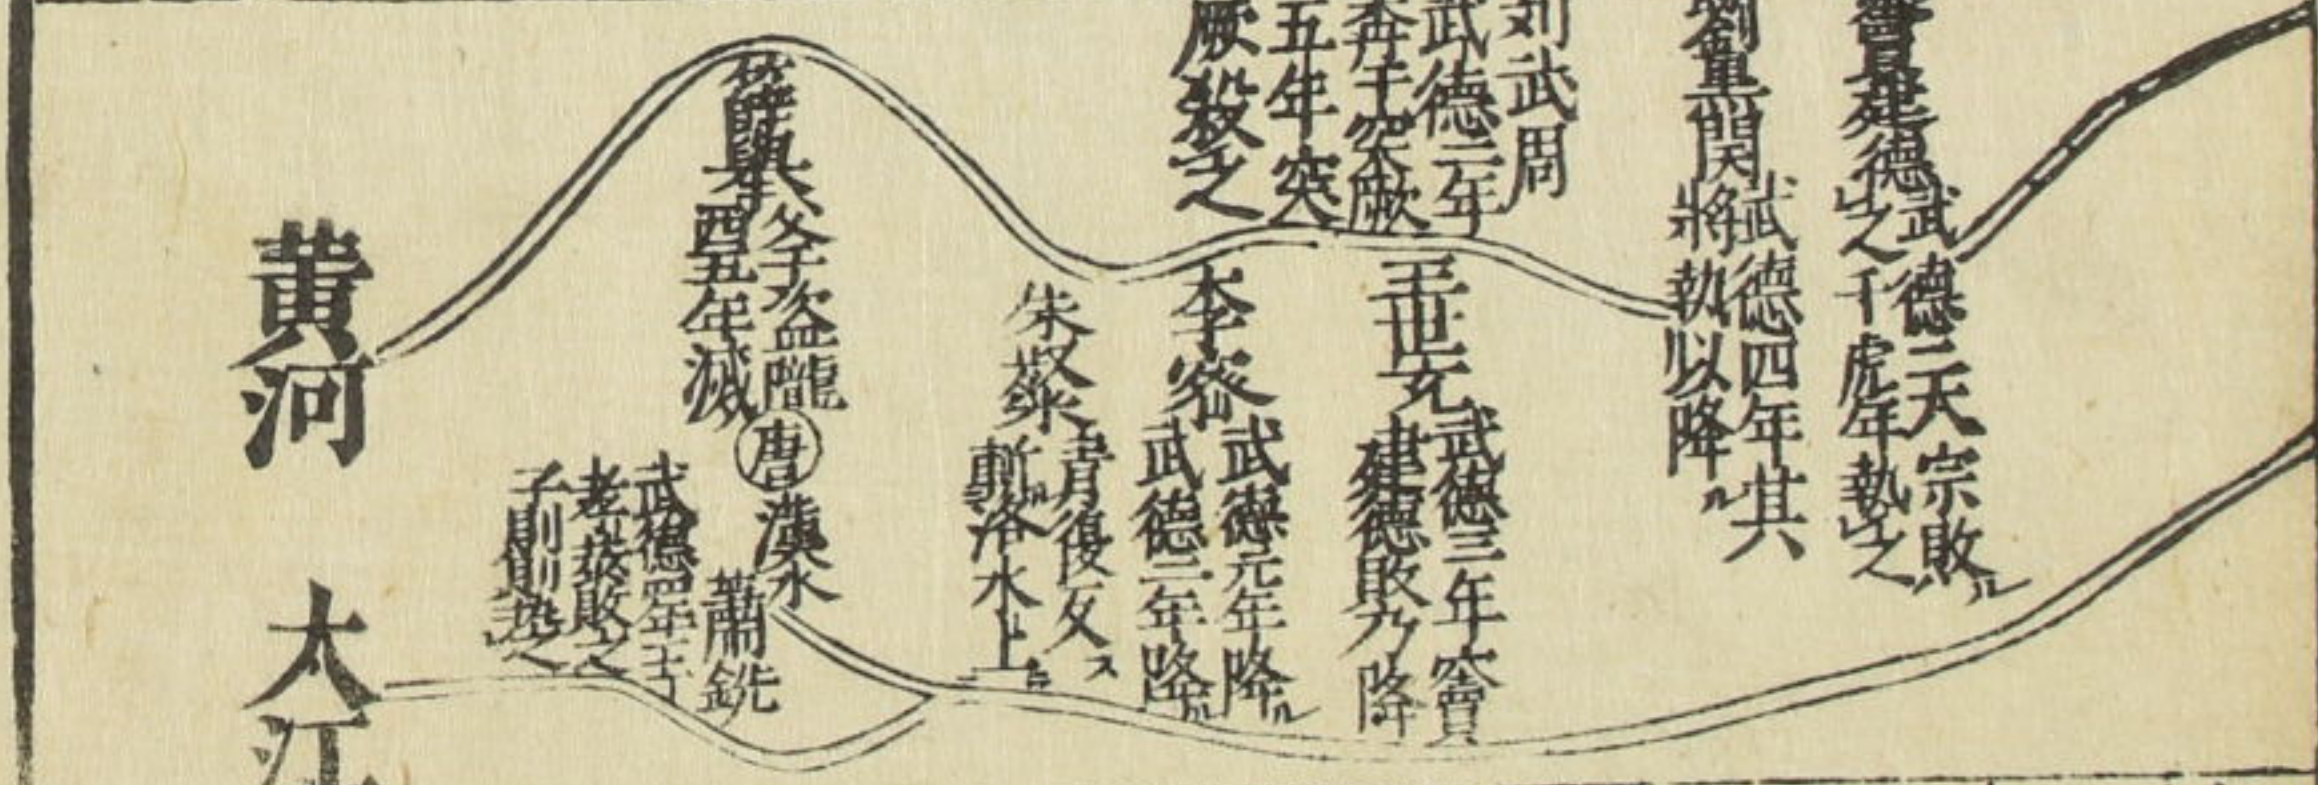 竇建德
武德二天宗敗ル
之于虎年執之
劉黒闥
武德四年其
將執以降ル
刘武周
武德三年
奔于突厥
五年突
厥殺之
王世充
武德三年竇
建德敗乃降
李密
武德元年降ル
武德二年降ル
朱粲
肯復反ス
斬洛水上
薛舉
父子盗隴
四五年滅
唐
漢水
蕭銑
武德四年王
孝恭敗之
子則則執之
黄河
大江